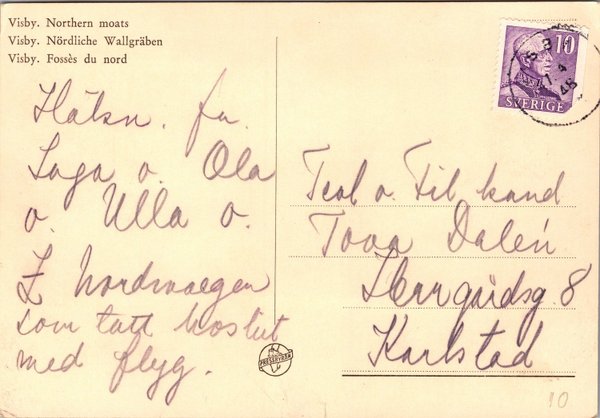 Visby. Northern moats
Visby. Nördliche Wallgräben
Visby. Fossès du nord
10
SVERIGE
Hälsn. fr.
Saga o. Ola
o. Ulla o.
Z Nordwaegen
som tatt hoslut
med flyg.
Teol o. Fil. kand
Tova Dalén
Herrgårdsg. 8
Karlstad
PRESSBYRÅN
10